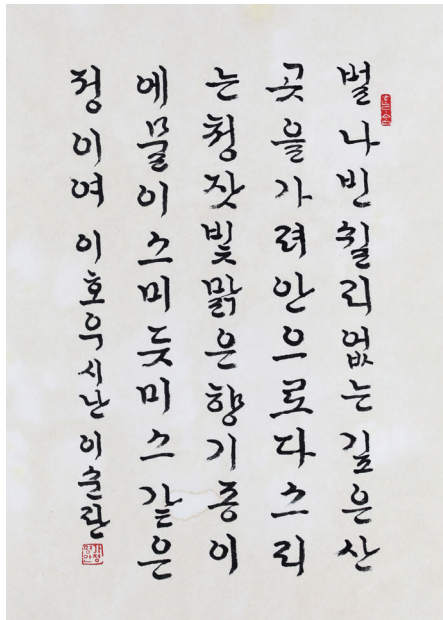 벌나빈쉴리없는깊은산
곳을가려안으로다스리
는청잣빛맑은향기종이
에물이스미듯미스같은
정이여 이호우시난 이순란